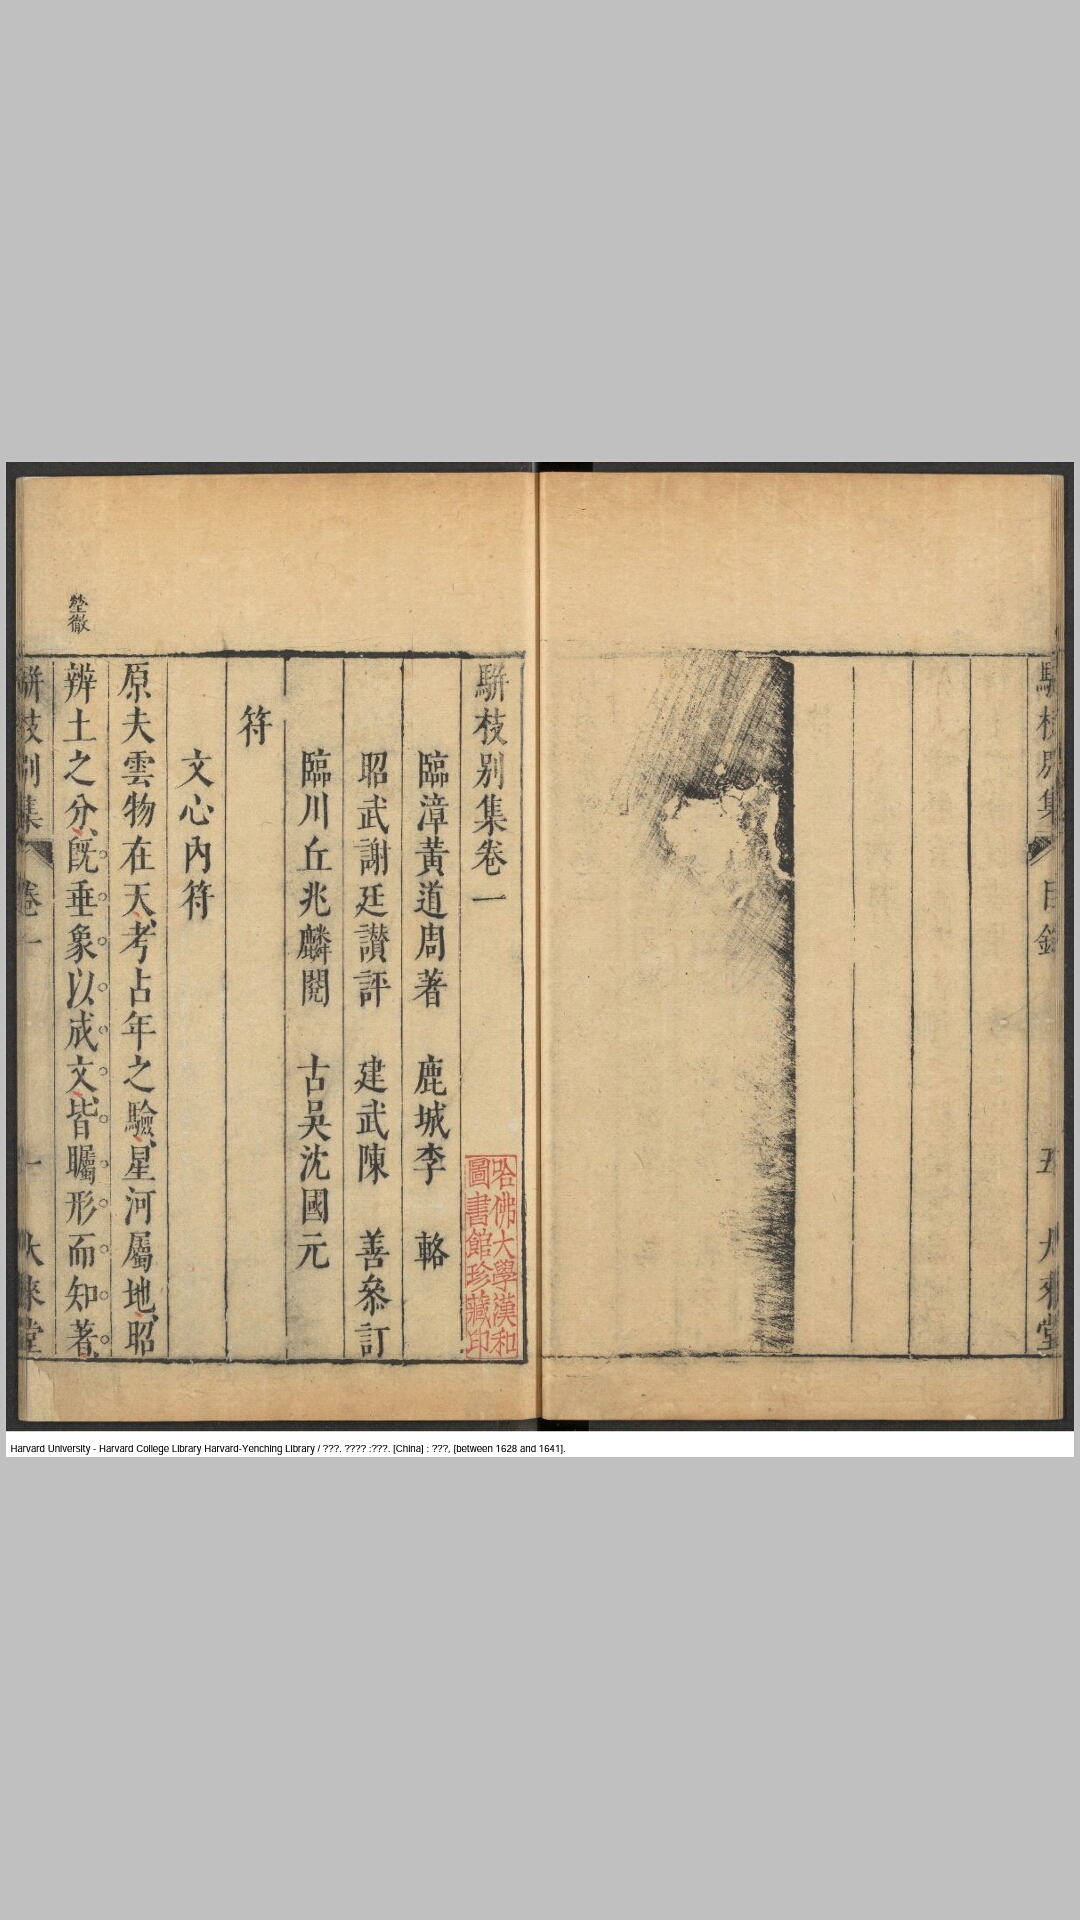 駢枝別集
目錄
五
大來堂
駢枝別集卷一
臨漳黃道周著　鹿城李　輅
昭武謝廷讚評　建武陳　善叅訂
臨川丘兆麟閱　古吳沈國元
符
文心內符
原夫雲物在天、考占年之驗、星河屬地、昭
辨土之分、旣垂象以成文、皆矚形而知著、
瑩徹
駢枝別集
卷一
一
大來堂
哈佛大學漢和
圖書館珍藏印
Harvard University - Harvard College Library Harvard-Yenching Library / ???. ???? :???. [China] : ???, [between 1628 and 1641].